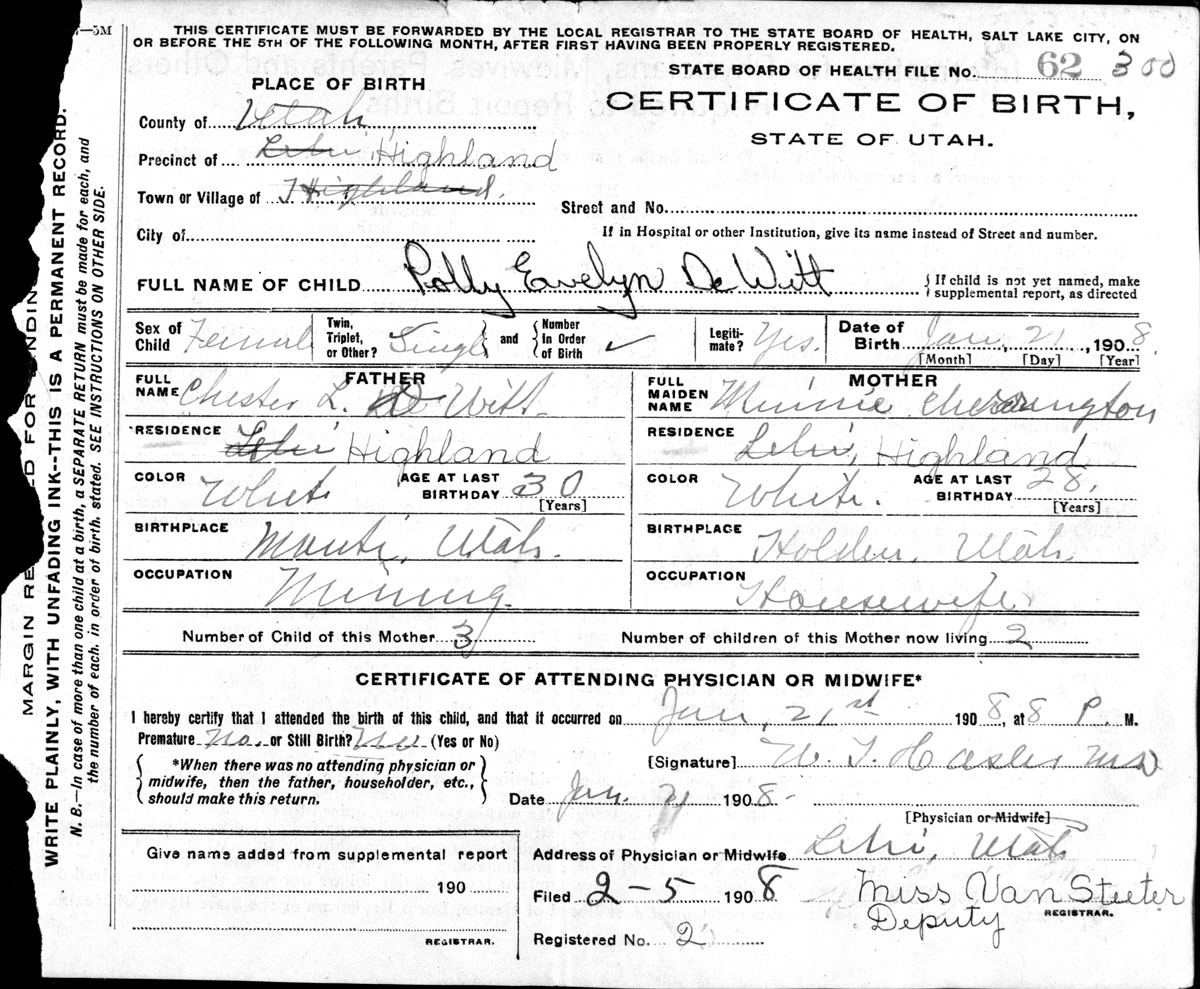 —5M
THIS CERTIFICATE MUST BE FORWARDED BY THE LOCAL REGISTRAR TO THE STATE BOARD OF HEALTH, SALT LAKE CITY, ON
OR BEFORE THE 5TH OF THE FOLLOWING MONTH, AFTER FIRST HAVING BEEN PROPERLY REGISTERED.
STATE BOARD OF HEALTH FILE No. 62 300
PLACE OF BIRTH
CERTIFICATE OF BIRTH,
STATE OF UTAH.
County of Utah,
Precinct of Lehi Highland
Town or Village of Highland.
Street and No.
City of
If in Hospital or other Institution, give its name instead of Street and number.
FULL NAME OF CHILD Polly Evelyn De Witt
{If child is not yet named, make
supplemental report, as directed
Sex of Child Female
Twin, Triplet, or Other? Single
and
Number in Order of Birth ✓
Legiti-mate? Yes.
Date of Birth Jan, 21, 1908.
[Month] [Day] [Year]
FATHER
FULL NAME Chester L. De Witt.
RESIDENCE Lehi Highland
COLOR White
AGE AT LAST BIRTHDAY 30
[Years]
BIRTHPLACE Manti, Utah.
OCCUPATION Mining.
MOTHER
FULL MAIDEN NAME Minnie
RESIDENCE Lehi, Highland
COLOR White.
AGE AT LAST BIRTHDAY 28,
[Years]
BIRTHPLACE Holden, Utah.
OCCUPATION Housewife
Number of Child of this Mother 3
Number of children of this Mother now living 2
CERTIFICATE OF ATTENDING PHYSICIAN OR MIDWIFE*
I hereby certify that I attended the birth of this child, and that it occurred on Jan, 21st 1908, at 8 P. M.
Premature No. or Still Birth? No (Yes or No)
{*When there was no attending physician or
midwife, then the father, householder, etc.,
should make this return.}
[Signature] W. T. Hasler MD
Date Jan. 21 1908
[Physician or Midwife]
Give name added from supplemental report
190
REGISTRAR.
Address of Physician or Midwife Lehi, Utah
Filed 2-5 1908
Miss Van Steeter
Deputy
REGISTRAR.
Registered No. 2
MARGIN RE
D FOR
NDING
WRITE PLAINLY, WITH UNFADING INK--THIS IS A PERMANENT RECORD.
N. B.—In case of more than one child at a birth, a SEPARATE RETURN must be made for each, and
the number of each, in order of birth, stated. SEE INSTRUCTIONS ON OTHER SIDE.